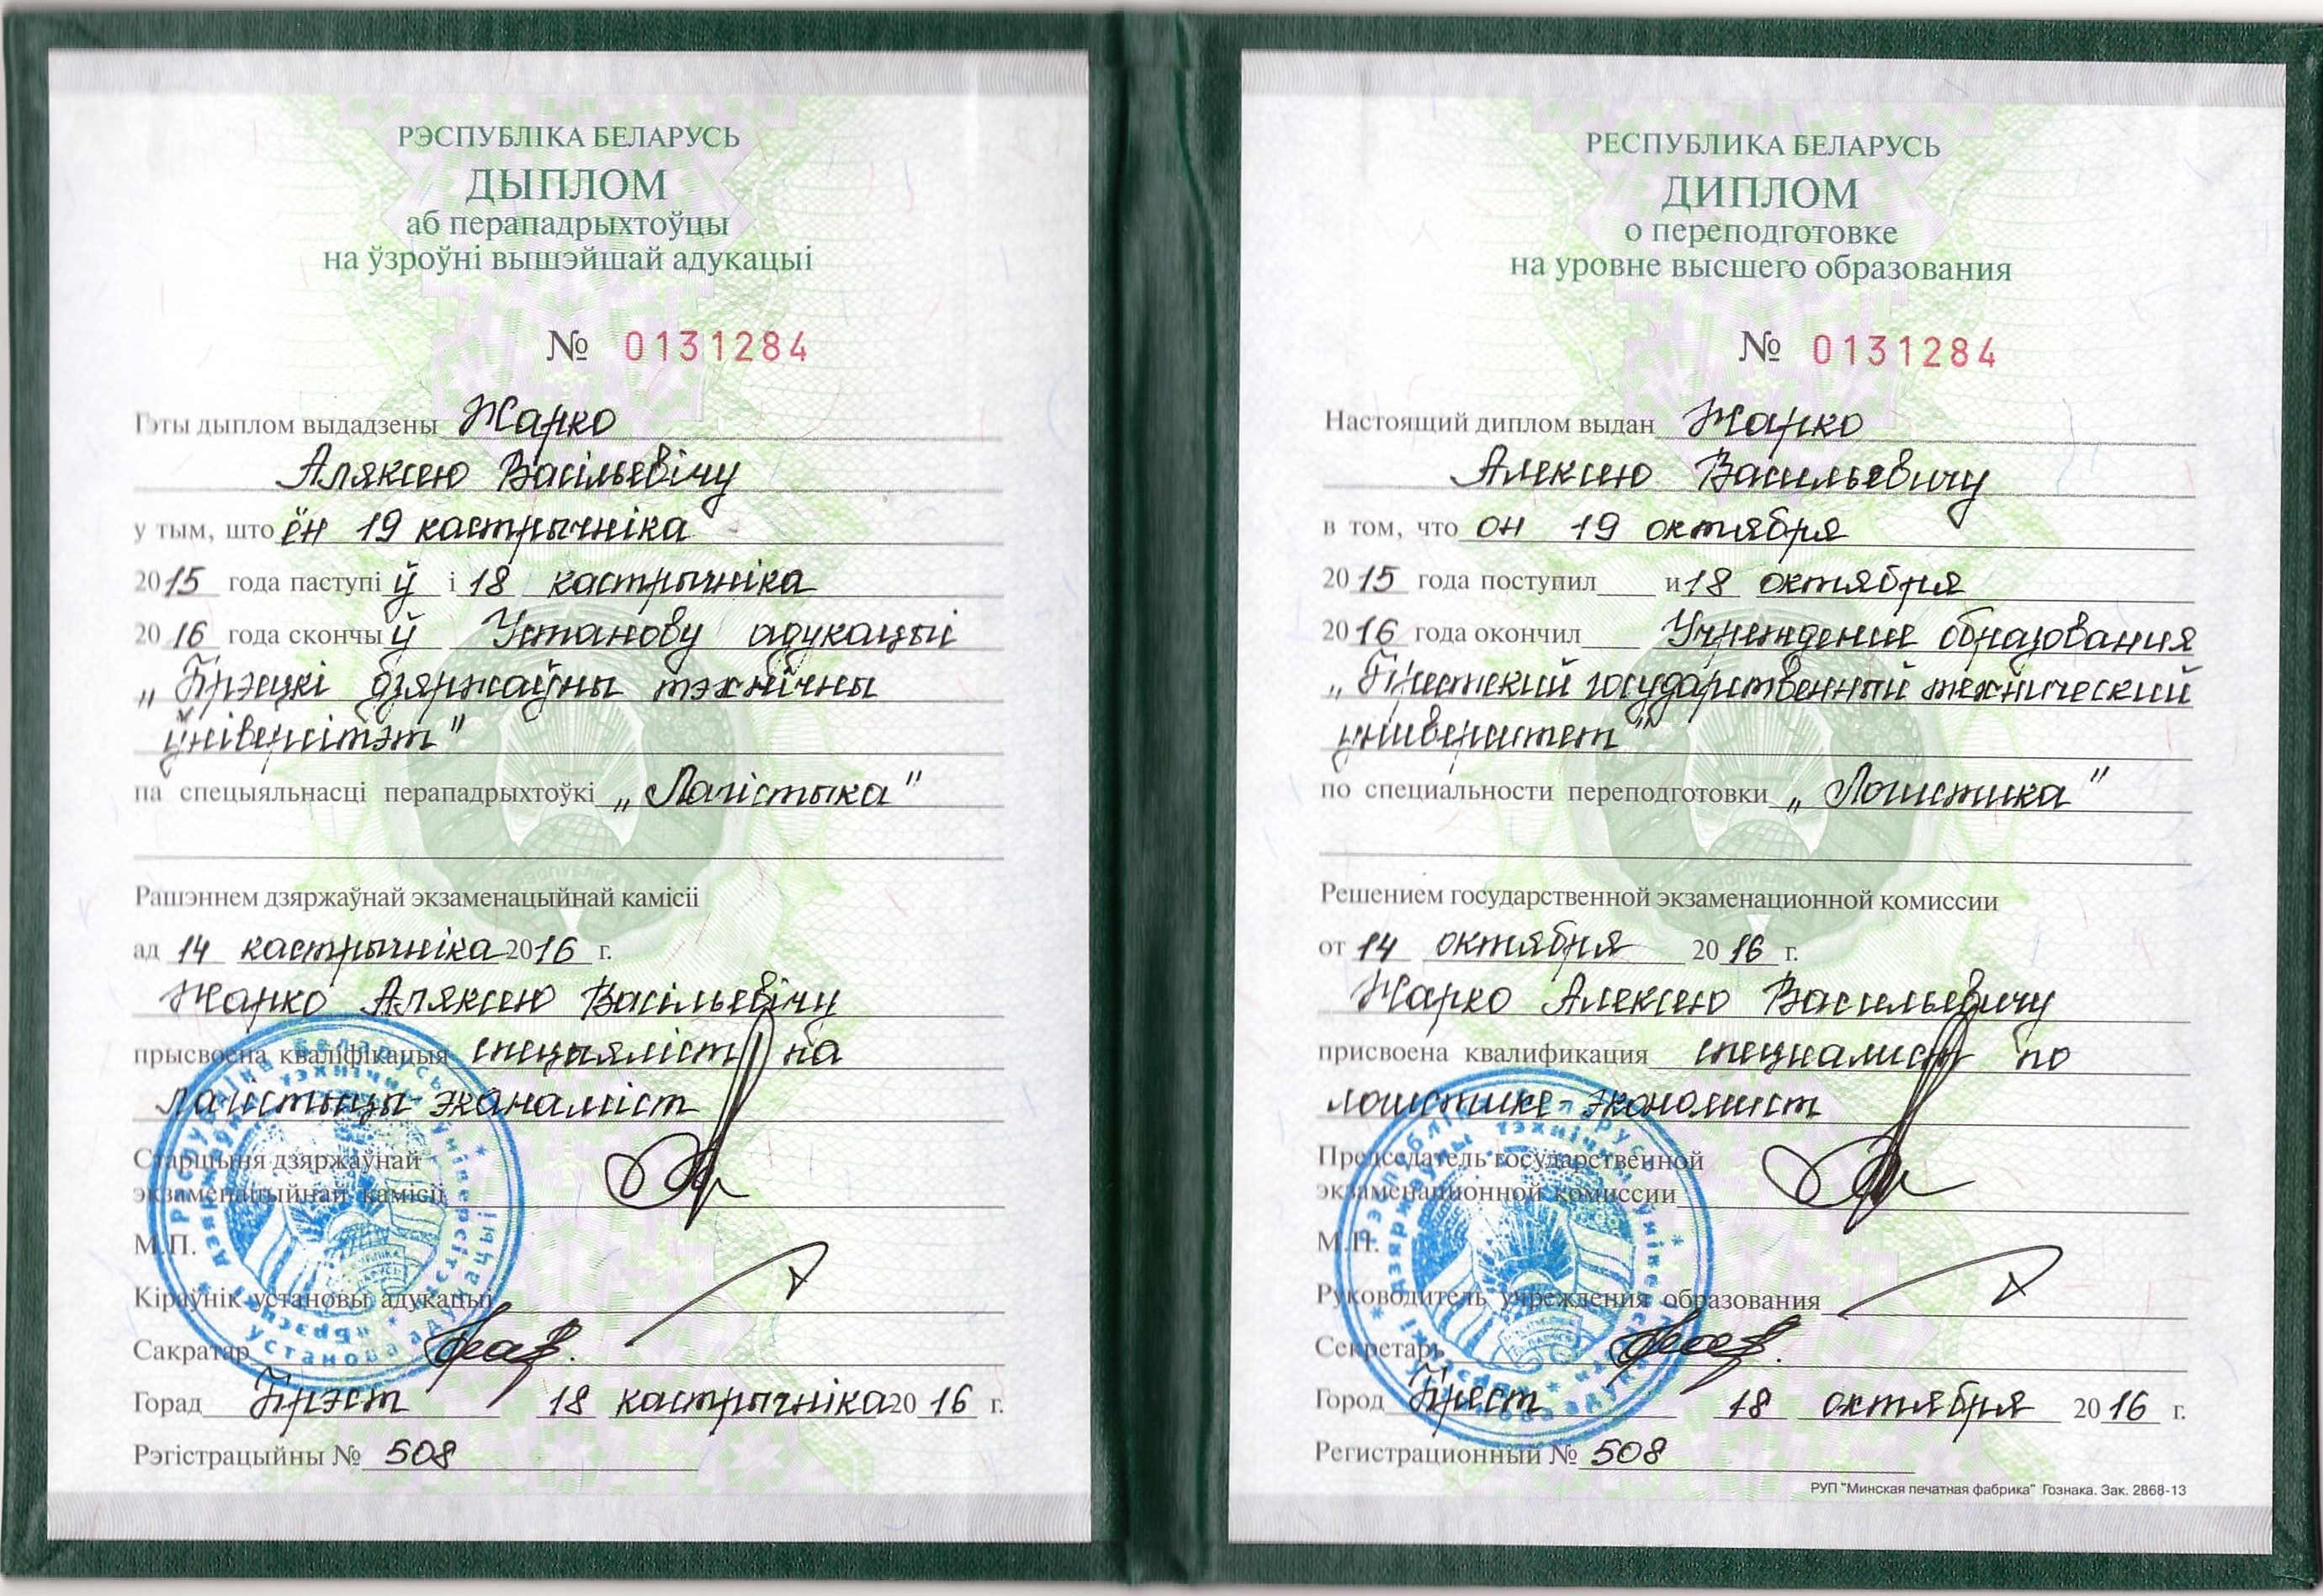 РЭСПУБЛІКА БЕЛАРУСЬ
ДЫПЛОМ
аб перападрыхтоўцы
на ўзроўні вышэйшай адукацыі
№ 0131284
Гэты дыплом выдадзены Жарко
Аляксею Васільевічу
у тым, што ён 19 кастрычніка
2015 года паступі ў і 18 кастрычніка
2016 года скончы ў Установу адукацыі
„Брэсцкі дзяржаўны тэхнічны
ўніверсітэт"
па спецыяльнасці перападрыхтоўкі „Лагістыка"
Рашэннем дзяржаўнай экзаменацыйнай камісіі
ад 14 кастрычніка 2016 г.
Жарко Аляксею Васільевічу
прысвоена кваліфікацыя спецыяліст па
лагістыцы-эканаміст
Старшыня дзяржаўнай
экзаменацыйнай камісіі
М.П.
Кіраўнік установы адукацыі
Сакратар
Горад Брэст 18 кастрычніка 2016 г.
Рэгістрацыйны № 508
РЕСПУБЛИКА БЕЛАРУСЬ
ДИПЛОМ
о переподготовке
на уровне высшего образования
№ 0131284
Настоящий диплом выдан Жарко
Алексею Васильевичу
в том, что он 19 октября
2015 года поступил и 18 октября
2016 года окончил Учреждение образования
„Брестский государственный технический
университет"
по специальности переподготовки „Логистика"
Решением государственной экзаменационной комиссии
от 14 октября 2016 г.
Жарко Алексею Васильевичу
присвоена квалификация специалист по
логистике-экономист
Председатель государственной
экзаменационной комиссии
М.П.
Руководитель учреждения образования
Секретарь
Город Брест 18 октября 2016 г.
Регистрационный № 508
РУП "Минская печатная фабрика" Гознака. Зак. 2868-13